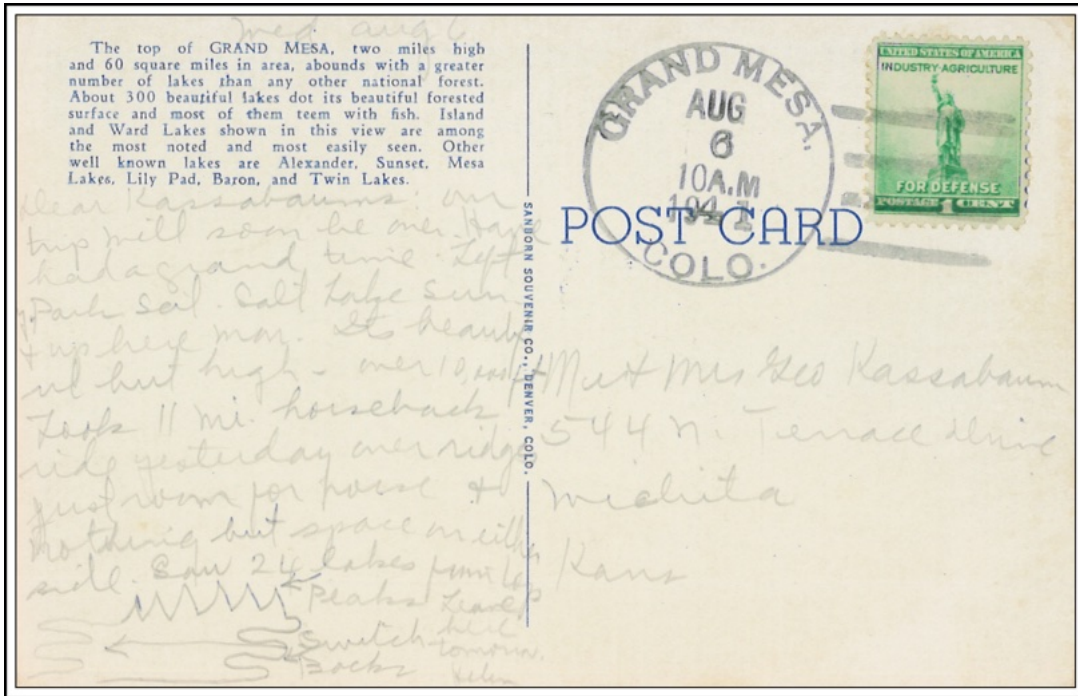 Wed Aug 6
The top of GRAND MESA, two miles high
and 60 square miles in area, abounds with a greater
number of lakes than any other national forest.
About 300 beautiful lakes dot its beautiful forested
surface and most of them teem with fish. Island
and Ward Lakes shown in this view are among
the most noted and most easily seen. Other
well known lakes are Alexander, Sunset, Mesa
Lakes, Lily Pad, Baron, and Twin Lakes.
Dear Kassabaums: our
trip will soon be over. Have
had a grand time. Left
Park Sat. Salt Lake Sun.
& up here Mon. It beautif
ul but high - over 10,000 ft
Took 11 mi. horseback
ride yesterday over ridge
just room for horse &
nothing but space on either
side. Saw 24 lakes from top
Peaks Leave
here
Switch- tomorrow.
Backs Helen
SANBORN SOUVENIR CO., DENVER, COLO.
GRAND MESA,
AUG
6
10 A.M
1941
COLO.
UNITED STATES OF AMERICA
INDUSTRY AGRICULTURE
FOR DEFENSE
POSTAGE 1 CENT
POST CARD
Mr & Mrs Geo Kassabaum
544 N. Terrace Drive
Wichita
Kans